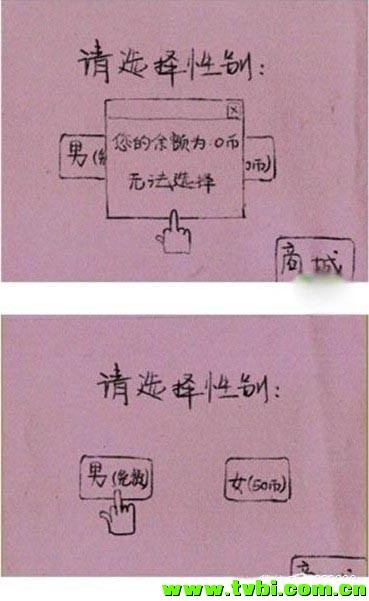 请选择性别:
您的余额为:0币
无法选择
男(免
0币)
商城
请选择性别:
男(免费)
女(50币)
www.tvbj.com.cn